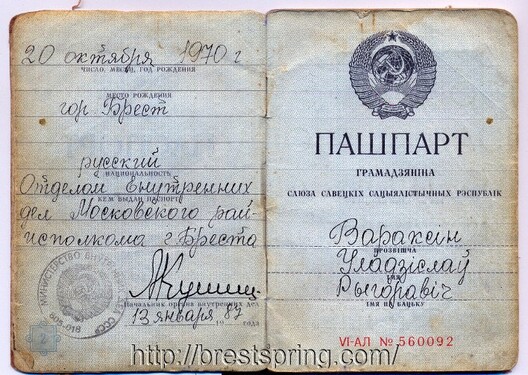 20 октября 1970 г
ЧИСЛО, МЕСЯЦ, ГОД РОЖДЕНИЯ
МЕСТО РОЖДЕНИЯ
гор Брест
русский
НАЦИОНАЛЬНОСТЬ
Отделом Внутренних
КЕМ ВЫДАН ПАСПОРТ
дел Московского рай-
исполкома г. Бреста
Начальник органа внутренних дел
13 января 87
19 года
МИНИСТЕРСТВО ВНУТРЕННИХ ДЕЛ СССР
608-018
2
ПАШПАРТ
ГРАМАДЗЯНІНА
САЮЗА САВЕЦКІХ САЦЫЯЛІСТЫЧНЫХ РЭСПУБЛІК
Вараксін
ПРОЗВІШЧА
Уладзіслаў
ІМЯ
Рыгоравіч
ІМЯ ПА БАЦЬКУ
VI-АЛ № 560092
http://brestspring.com/